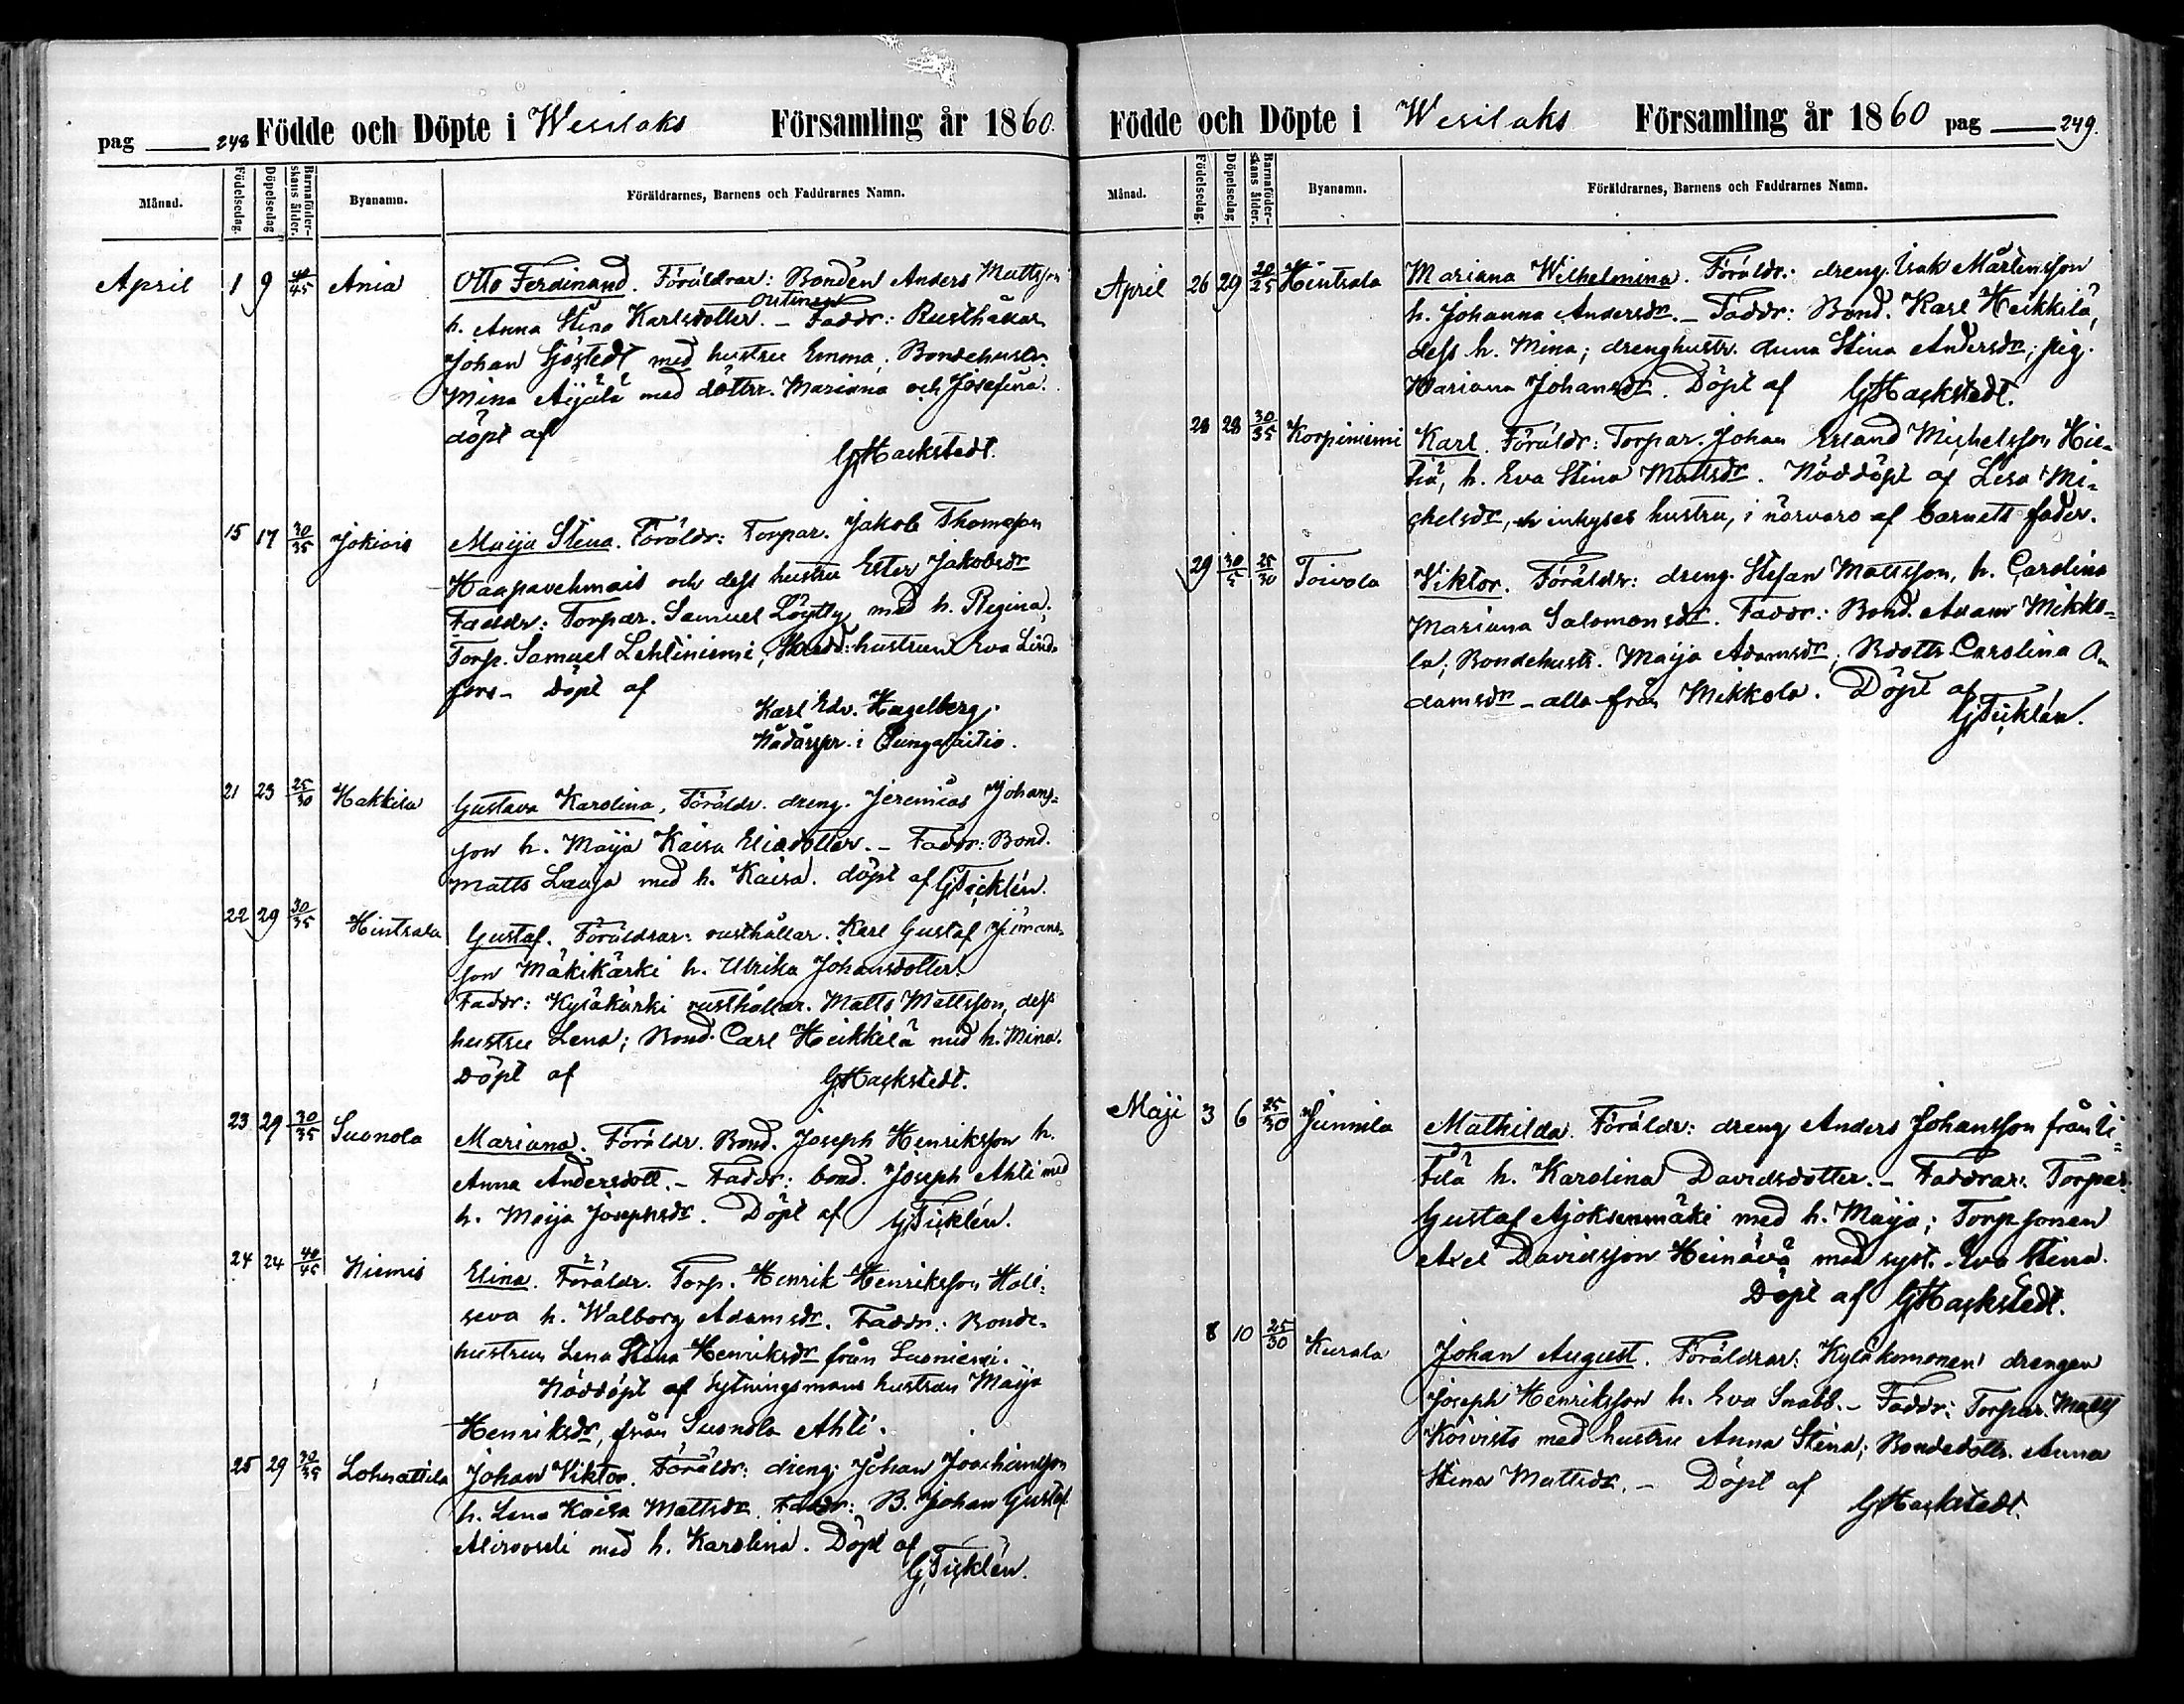 pag 248 Födde och Döpte i Wesilaks Församling år 1860.
Månad. Födelsedag. Döpelsedag Barnaföderskans ålder. Byanamn. Föräldrarnes, Barnens och Faddrarnes Namn.
April 1 9 40/45 Ania Otto Ferdinand. Föräldrar: Bonden Anders Mattsson
Outinen
h. Anna Stina Karlsdotter. – Faddr: Rusthållar
Johan Sjöstedt med hustru Emma, Bondehustr.
Mina Äijälä med döttrr. Mariana och Josefina.
döpt af
GHackstedt.
15 17 30/35 Jokiois Maija Stina. Föräldr: Torpar. Jakob Thomasson
Haapavehmais och dess hustru Ester Jakobsdr
Faddr: Torpar. Samuel Löytty med h. Regina;
Torp. Samuel Lehtiniemi; hustrun Eva Lind-
fors – Döpt af
Karl Edv. Hagelberg.
Nådårspr. i
21 23 25/30 Hakkila Gustava Karolina, Föräldr. dreng. Jeremias Johans-
son h. Maija Kaisa Eliadotter. – Faddr: Bond.
Matts Lauja med h. Kaisa. döpt af GTicklén.
22 29 30/35 Hintsala Gustaf. Föräldrar: rusthållar. Karl Gustaf
son Mäkikärki h. Ulrika Johansdotter.
Faddr: Kyläkärki rusthållar. Matts Mattsson, dess
hustru Lena; Bond. Carl Heikkilä med h. Mina.
Döpt af GHackstedt.
23 29 30/35 Suonola Mariana. Föräldr. Bond. Joseph Henriksson h.
Anna Andersdott. – Faddr: bond. Joseph Ahti med
h. Maija Josephsdr. Döpt af GTicklén.
24 24 40/45 Niemis Elina. Föräldr. Torp. Henrik Henriksson Holl-
seva h. Walborg Adamsdr. Faddr: Bonde-
hustrun Lena Stina Henriksdr från
Nöddöpt af Sytningsmans hustrun Maija
Henriksdr, från Suonola Ahti.
25 29 30/35 Lohnattila Johan Viktor. Föräldr: dreng Johan Joachimsson
h. Lena Kaisa Mattsdr. Faddr: B. Johan Gustaf
Alirovsti med h. Karolina. Döpt af
GTicklén.
Födde och Döpte i Wesilaks Församling år 1860 pag 249.
Månad. Födelsedag. Döpelsedag Barnaföderskans ålder. Byanamn. Föräldrarnes, Barnens och Faddrarnes Namn.
April 26 29 20/25 Hintsala Mariana Wilhelmina. Föräldr: dreng. Isak Mårtensson
h. Johanna Andersdr. – Faddr: Bond. Karl Heikkilä,
dess h. Mina; drenghustr. Anna Stina Andersdr; pig.
Mariana Johansdr. Döpt af GHackstedt.
28 28 30/35 Korpiniemi Karl. Föräldr: Torpar. Johan Erland Michelsson Hie-
tia, h. Eva Stina Mattsdr. Nöddöpt af Lisa Mi-
chelsdr, en inhyses hustru, i närvaro af barnets fader.
29 30/5 25/30 Toivola Viktor. Föräldr: dreng. Stefan Mattsson, h. Carolina
Mariana Salomonsdr. Faddr: Bond. Adam Mikko-
la; Bondehustr. Maija Adamsdr; Bdottr Carolina A-
damsdr – alla från Mikkola. Döpt af
GTicklén.
Maji 3 6 25/30 Junnila Mathilda. Föräldr: dreng Anders Johansson från Ii-
tilä h. Karolina Davidsdotter. – Faddrar: Torpar.
Gustaf Ajoksenmäki med h. Maija; Torpsonen
Axel Davidsson Heinävä med syst. Eva Stina.
Döpt af GHackstedt.
8 10 25/30 Kurala Johan August. Föräldrar: Kyläkomonen drengen
Joseph Henriksson h. Eva Snabb. – Faddr: Torpar. Matts
Koivisto med hustru Anna Stina; Bondedottr. Anna
Stina Mattsdr. – Döpt af
GHackstedt.